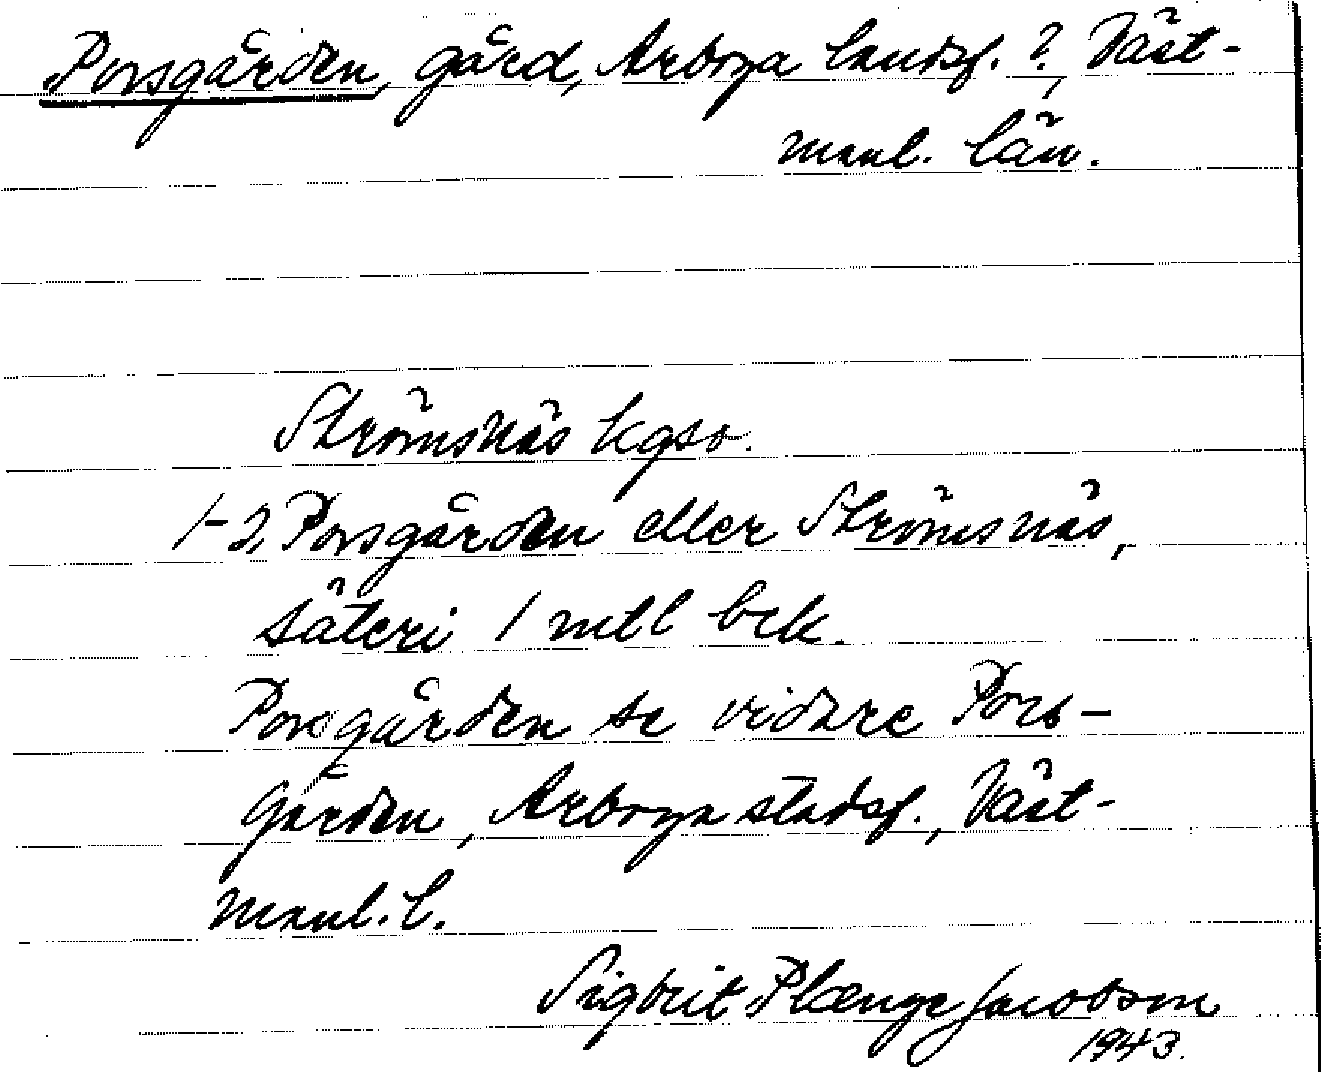 Porsgården, gård, Arboga landsf. ?, Väst-
manl. län.
Strömsnäs kgso.
1-2, Porsgården eller Strömsnäs,
säteri 1 mtl bek.
Porsgården se vidare Pors-
gården, Arboga stadsf., Väst-
manl. l.
Sigbrit Plænge Jacobson
1943.